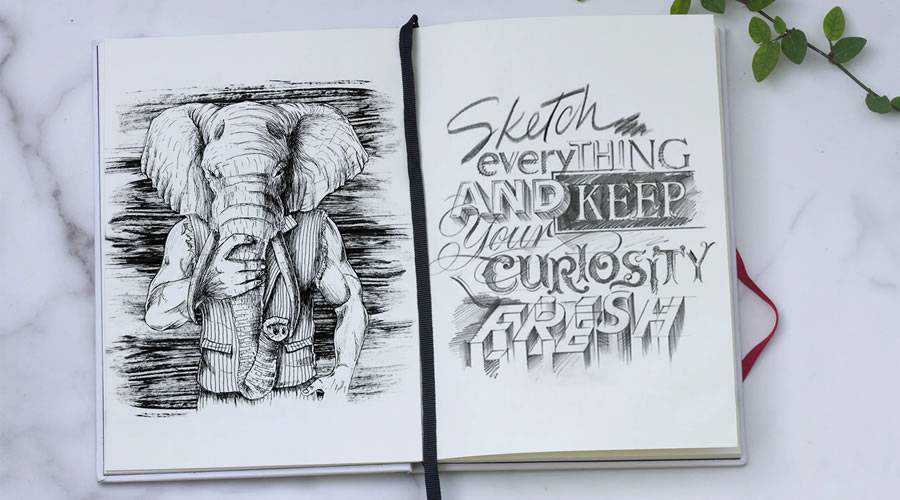 Sketch
everyTHING
AND KEEP
Your
CURIOSITY
FRESH